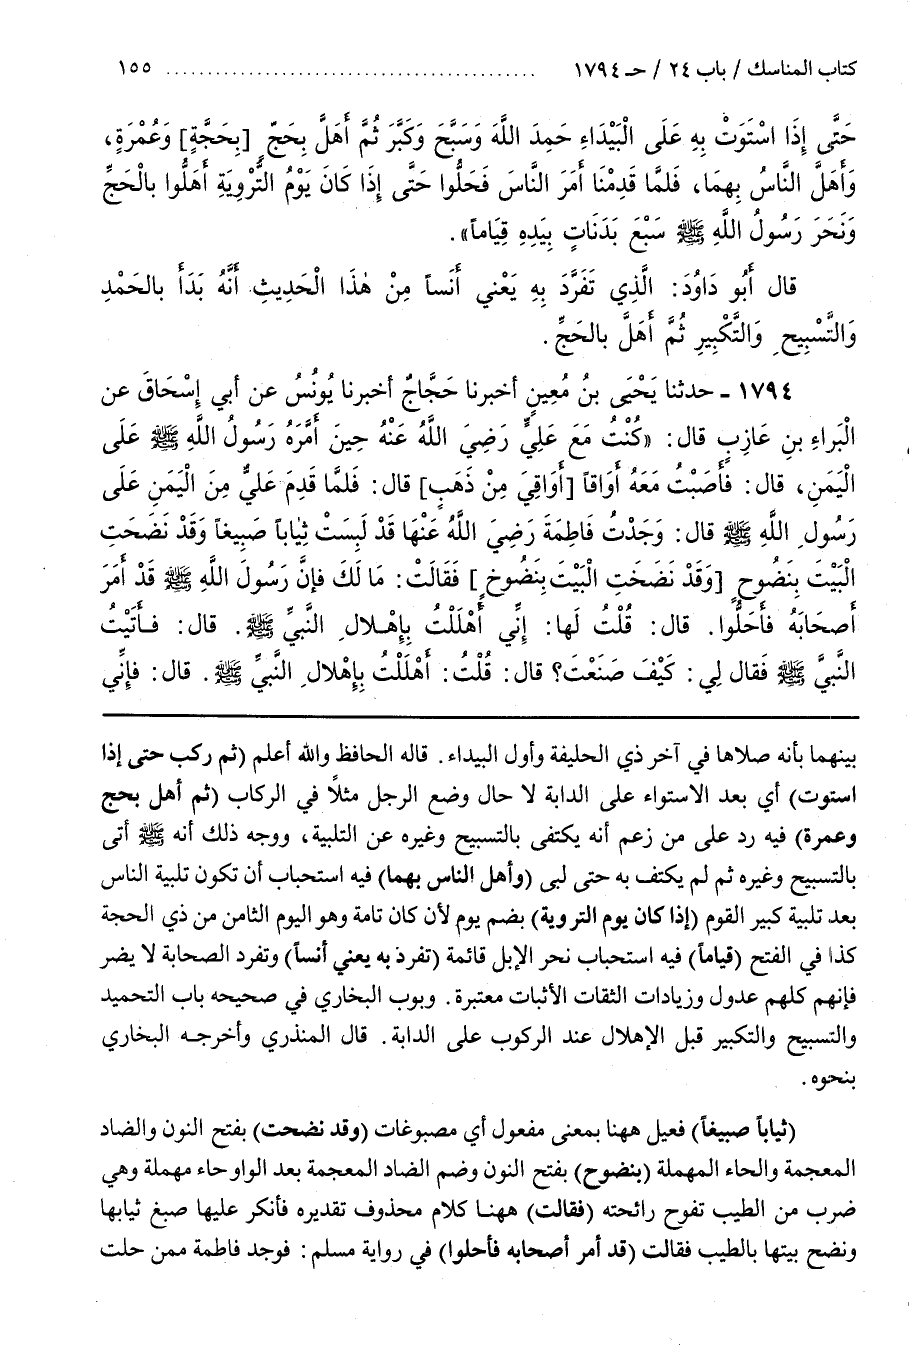 كتاب المناسك / باب ٢٤ / حـ ١٧٩٤ ............................................ ١٥٥
حَتَّى إِذَا اسْتَوَتْ بِهِ عَلَى الْبَيْدَاءِ حَمِدَ اللَّهَ وَسَبَّحَ وَكَبَّرَ ثُمَّ أَهَلَّ بِحَجٍّ [بِحَجَّةٍ] وَعُمْرَةٍ،
وَأَهَلَّ النَّاسُ بِهِمَا، فَلمَّا قَدِمْنَا أَمَرَ النَّاسَ فَحَلُّوا حَتَّى إِذَا كَانَ يَوْمُ التَّرْوِيَةِ أَهَلُّوا بالْحَجِّ
وَنَحَرَ رَسُولُ اللَّهِ ﷺ سَبْعَ بَدَنَاتٍ بِيَدِهِ قِيَاماً».
قال أَبُو دَاوُدَ: الَّذِي تَفَرَّدَ بِهِ يَعْني أَنَساً مِنْ هٰذَا الْحَدِيثِ أَنَّهُ بَدَأَ بالحَمْدِ
وَالتَّسْبِيحِ وَالتَّكْبِيرِ ثُمَّ أَهَلَّ بالحَجِّ.
١٧٩٤ ـ حدثنا يَحْيَى بنُ مُعِينٍ أخبرنا حَجَّاجٌ أخبرنا يُونُسُ عن أبي إِسْحَاقَ عن
الْبَراءِ بنِ عَازِبٍ قال: «كُنْتُ مَعَ عَلِيٍّ رَضِيَ اللَّهُ عَنْهُ حِينَ أَمَّرَهُ رَسُولُ اللَّهِ ﷺ عَلَى
الْيَمَنِ، قال: فَأَصَبْتُ مَعَهُ أَوَاقاً [أَوَاقِيَ مِنْ ذَهَبٍ] قال: فَلمَّا قَدِمَ عَليٌّ مِنَ الْيَمَنِ عَلَى
رَسُولِ اللَّهِ ﷺ قال: وَجَدْتُ فَاطِمَةَ رَضِيَ اللَّهُ عَنْهَا قَدْ لَبِسَتْ ثِيَاباً صَبِيغاً وَقَدْ نَضَحَتِ
الْبَيْتَ بِنَضُوحٍ [وَقَدْ نَضَحَتِ الْبَيْتَ بِنَضُوخٍ] فَقَالَتْ: مَا لَكَ فإِنَّ رَسُولَ اللَّهِ ﷺ قَدْ أَمَرَ
أَصحَابَهُ فأَحَلُّوا. قال: قُلْتُ لَها: إِنِّي أَهْلَلْتُ بِإِهْلالِ النَّبيِّ ﷺ. قال: فأَتَيْتُ
النَّبيَّ ﷺ فَقال لِي: كَيْفَ صَنَعْتَ؟ قال: قُلْتُ: أَهْلَلْتُ بِإِهْلالِ النَّبيِّ ﷺ. قال: فإِنِّي
بينهما بأنه صلاها في آخر ذي الحليفة وأول البيداء. قاله الحافظ والله أعلم (ثم ركب حتى إذا
استوت) أي بعد الاستواء على الدابة لا حال وضع الرجل مثلًا في الركاب (ثم أهل بحج
وعمرة) فيه رد على من زعم أنه يكتفى بالتسبيح وغيره عن التلبية، ووجه ذلك أنه ﷺ أتى
بالتسبيح وغيره ثم لم يكتف به حتى لبى (وأهل الناس بهما) فيه استحباب أن تكون تلبية الناس
بعد تلبية كبير القوم (إذا كان يوم التروية) بضم يوم لأن كان تامة وهو اليوم الثامن من ذي الحجة
كذا في الفتح (قياماً) فيه استحباب نحر الإبل قائمة (تفرد به يعني أنساً) وتفرد الصحابة لا يضر
فإنهم كلهم عدول وزيادات الثقات الأثبات معتبرة. وبوب البخاري في صحيحه باب التحميد
والتسبيح والتكبير قبل الإهلال عند الركوب على الدابة. قال المنذري وأخرجه البخاري
بنحوه.
(ثياباً صبيغاً) فعيل ههنا بمعنى مفعول أي مصبوغات (وقد نضحت) بفتح النون والضاد
المعجمة والحاء المهملة (بنضوح) بفتح النون وضم الضاد المعجمة بعد الواو حاء مهملة وهي
ضرب من الطيب تفوح رائحته (فقالت) ههنا كلام محذوف تقديره فأنكر عليها صبغ ثيابها
ونضح بيتها بالطيب فقالت (قد أمر أصحابه فأحلوا) في رواية مسلم: فوجد فاطمة ممن حلت